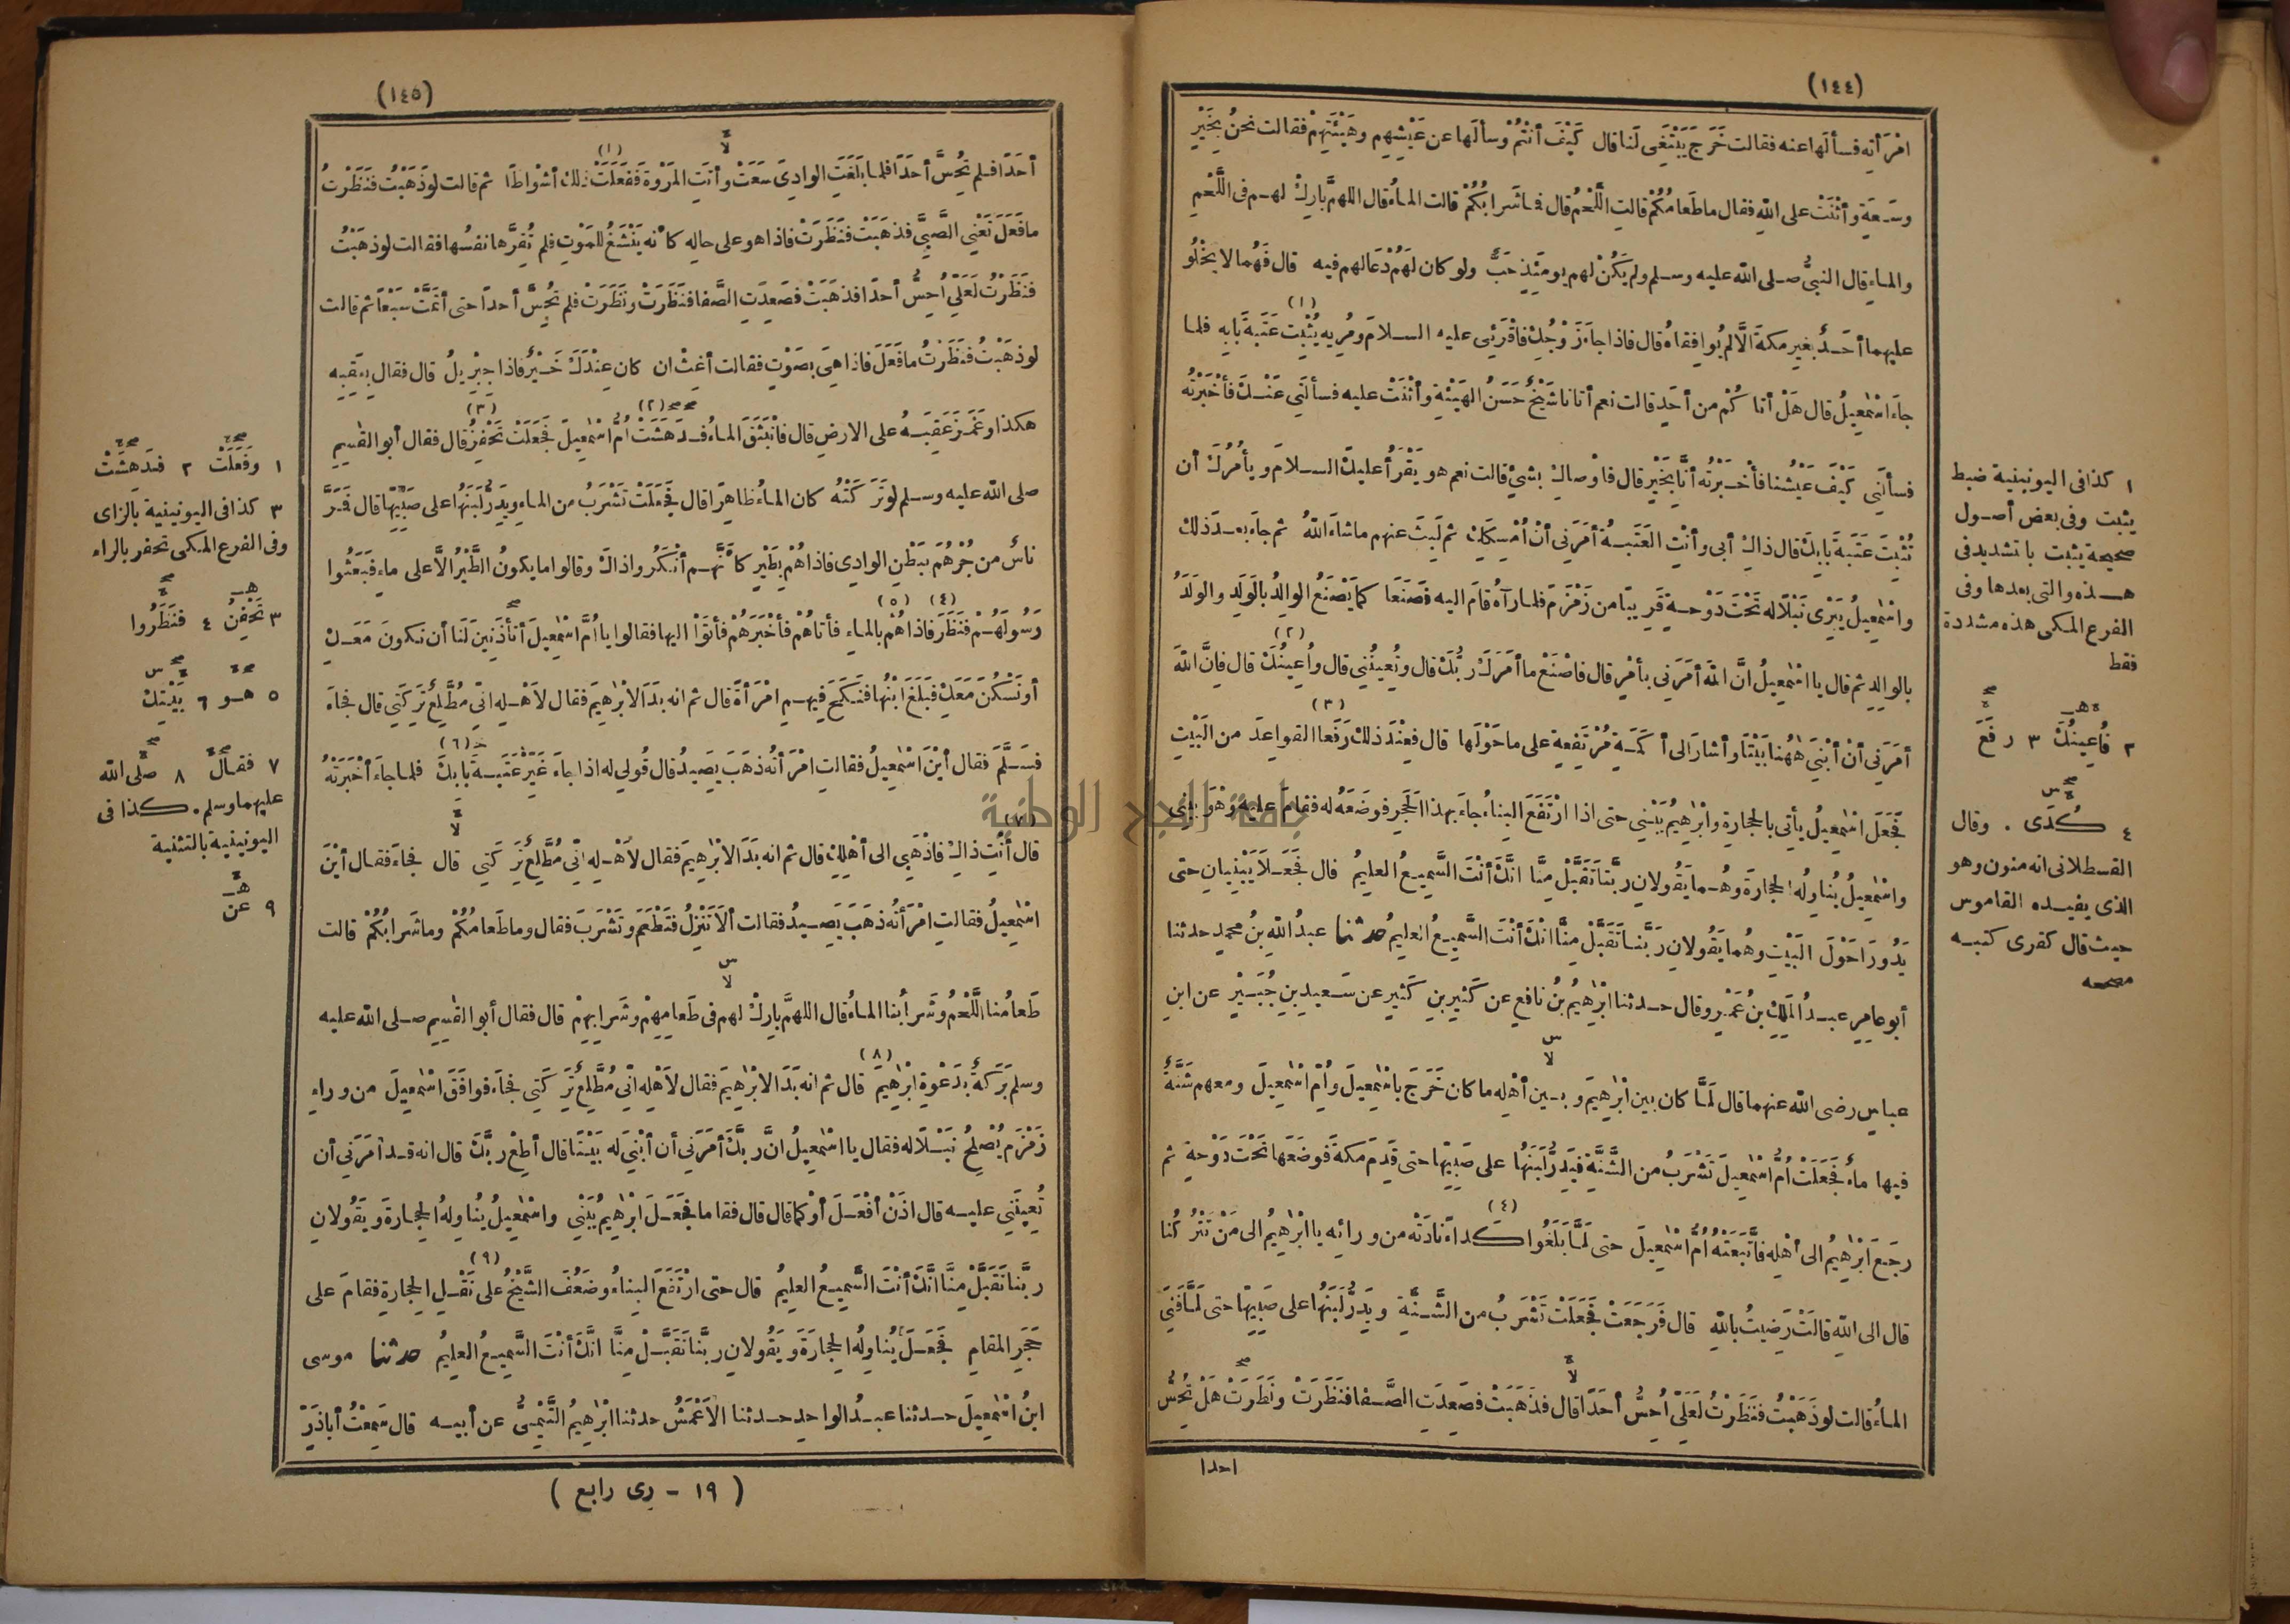 (١٤٤)
امْرَأتِه فسألَها عنه فقالت خَرَجَ يَبْتَغِى لَنا قال كَيْفَ أنتُمْ وسألَها عن عَيْشِهِم وهَيْئَتِهِمْ فقالت نحنُ بِخَيْرٍ
وسَعَةٍ وأثْنَتْ على اللهِ فقال ما طَعامُكُمْ قالتِ اللَّحْمُ قال فما شَرابُكُمْ قالت الماءُ قال اللهمَّ بارِكْ لهم فى اللَّحْمِ
والماءِ قال النبىُّ صلى الله عليه وسلم ولم يَكُنْ لهم يومَئِذٍ حَبٌّ ولو كان لهُمْ دَعا لهم فيه قال فَهُما لا يَخْلُو
(١)
عليهما أحَدٌ بغيرِ مكةَ الَّا لم يُوافِقاهُ قال فاذا جاءَ زَوْجُكِ فاقْرَئِى عليه السلامَ ومُرِيه يُثْبِتْ عَتَبَةَ بابِه فلما
جاءَ اسْمٰعيلُ قال هَلْ أتاكُم من أحَدٍ قالت نعم أتانا شَيْخٌ حَسَنُ الهَيْئَةِ وأثْنَتْ عليه فسألَنِى عَنْكَ فأخْبَرْتُه
فسألَنِى كَيْفَ عَيْشُنا فأخْبَرْتُه أنَّا بِخَيْرٍ قال فاوْصاكِ بشئٍ قالت نعم هو يَقْرَأُ عليكَ السلامَ ويأمُرُكَ أن
تُثْبِتَ عَتَبَةَ بابِكَ قال ذاكِ أبى وأنْتِ العَتَبَةُ أمَرَنى أنْ أُمْسِكَكِ ثم لَبِثَ عنهم ماشاءَ اللهُ ثم جاءَ بعدَ ذلكَ
واسْمٰعيلُ يَبْرِى نَبْلًا له تَحْتَ دَوْحةٍ قَرِيبًا من زَمْزَمَ فلما رآهُ قامَ اليه فصَنَعا كما يَصْنَعُ الوالِدُ بالوَلَدِ والوَلَدُ
(٢)
بالوالِدِ ثم قال يا اسْمٰعيلُ انَّ اللهَ أمَرَنى بأمْرٍ قال فاصْنَعْ ما أمَرَكَ ربُّكَ قال وتُعِينُنِى قال وأُعِينُكَ قال فانَّ اللهَ
(٣)
أمَرَنى أنْ أبْنِىَ هٰهُنا بَيْتًا وأشارَ الى أكَمَةٍ مُرْتَفِعةٍ على ما حَوْلَها قال فعِنْدَ ذلكَ رَفَعا القواعِدَ من البَيْتِ
فَجَعَلَ اسْمٰعيلُ يأتى بالحِجارةِ وابْرٰهيمُ يَبْنِى حتى اذا ارْتَفَعَ البِناءُ جاءَ بهذا الحَجَرِ فوضَعَهُ له فقامَ عليه وهْوَ يبنى
واسْمٰعيلُ يُناوِلُه الحِجارَةَ وهُما يَقُولانِ ربَّنا تَقَبَّلْ مِنَّا انكَ أنْتَ السَّميعُ العليمُ قال فَجَعَلا يَبْنِيانِ حتى
يَدُورا حَوْلَ البَيْتِ وهُما يَقُولانِ رَبَّنا تَقَبَّلْ مِنَّا انكَ أنْتَ السَّميعُ العليمُ حدثنا عبدُ اللهِ بنُ محمدٍ حدثنا
أبو عامِرٍ عبدُ المَلِكِ بنُ عَمْرٍو قال حدثنا ابْرٰهيمُ بنُ نافِعٍ عن كَثيرِ بنِ كَثيرٍ عن سَعيدِ بنِ جُبَيْرٍ عن ابنِ
س
لا
عباسٍ رضى الله عنهما قال لَمَّا كان بين ابْرٰهيمَ وبين أهْلِه ما كان خَرَجَ باسْمٰعيلَ وأُمِّ اسْمٰعيلَ ومعهم شَنَّةٌ
فيها ماءٌ فَجَعَلَتْ أُمُّ اسْمٰعيلَ تَشْرَبُ من الشَّنَّةِ فيَدِرُّ لَبَنُها على صَبِيِّها حتى قَدِمَ مكةَ فوضَعَها تَحْتَ دَوْحةٍ ثم
(٤)
رجَعَ ابْرٰهيمُ الى أهْلِه فاتَّبَعَتْهُ أُمُّ اسْمٰعيلَ حتى لَمَّا بَلَغُوا كَداءً نادَتْه من ورائِه يا ابْرٰهيمُ الى مَنْ تَتْرُكُنا
قال الى اللهِ قالَتْ رَضِيتُ باللهِ قال فَرَجَعَتْ فَجَعَلَتْ تَشْرَبُ من الشَّنَّةِ ويَدِرُّ لَبَنُها على صَبِيِّها حتى لَمَّا فَنِىَ
لا
الماءُ قالت لو ذَهَبْتُ فنَظَرْتُ لَعَلِّى أُحِسُّ أحَدًا قال فذَهَبَتْ فصَعِدَتِ الصَّفا فنَظَرَتْ ونَظَرَتْ هَلْ تُحِسُّ
احدا
١ كذا فى اليونينية ضبط
يثبت وفى بعض أصول
صحيحة يثبت بالتشديد فى
هذه والتى بعدها وفى
الفرع المكى هذه مشددة
فقط
٢ فأُعِينُكَ ٣ رفَعَ
٤ كُدًى . وقال
القسطلانى انه منون وهو
الذى يفيده القاموس
حيث قال كقرى كتبه
مصححه
(١٤٥)
لا
(١)
أحَدًا فلم تُحِسَّ أحَدًا فلما بَلَغَتِ الوادِىَ سَعَتْ وأتَتِ المَرْوةَ ففَعَلَتْ ذلك أشْواطًا ثم قالت لو ذَهَبْتُ فنَظَرْتُ
ما فَعَلَ تَعْنِى الصَّبِىَّ فذهَبَتْ فنَظَرَتْ فاذا هو على حالِه كأنه يَنْشَغُ للمَوْتِ فلم تُقِرَّها نفسُها فقالت لو ذهَبْتُ
فنَظَرْتُ لَعَلِّى أُحِسُّ أحدًا فذهَبَتْ فصَعِدَتِ الصَّفا فنَظَرَتْ ونَظَرَتْ فلم تُحِسَّ أحدًا حتى أتَمَّتْ سَبْعًا ثم قالت
لو ذهَبْتُ فنَظَرْتُ ما فَعَلَ فاذا هِىَ بصَوْتٍ فقالت أغِثْ ان كان عِنْدَكَ خَيْرٌ فاذا جِبْرِيلُ قال فقال بعَقِبِه
(٢) (٣)
هكذا وغَمَزَ عَقِبَهُ على الارضِ قال فانْبَثَقَ الماءُ فدَهَشَتْ أُمُّ اسْمٰعيلَ فَجَعَلَتْ تَحْفِزُ قال فقال أبو القٰسِمِ
صلى الله عليه وسلم لو تَرَكَتْهُ كان الماءُ ظاهِرًا قال فَجَعَلَتْ تَشْرَبُ من الماءِ ويَدِرُّ لَبَنُها على صَبِيِّها قال فَمَرَّ
ناسٌ من جُرْهُمَ ببَطْنِ الوادِى فاذا هُمْ بِطَيْرٍ كأنَّهم أنْكَرُوا ذاكَ وقالوا ما يكونُ الطَّيْرُ الَّا على ماءٍ فبَعَثُوا
(٤) (٥)
رَسُولَهُمْ فنَظَرَ فاذا هُمْ بالماءِ فأتاهُمْ فأخْبَرَهُمْ فأتَوْا اليها فقالوا يا أُمَّ اسْمٰعيلَ أتأذَنِينَ لَنا أن نكونَ مَعَكِ
أو نَسْكُنَ مَعَكِ فبَلَغَ ابْنُها فنَكَحَ فيهِمِ امْرَأةً قال ثم انه بَدَا لابْرٰهيمَ فقال لأهْلِه انِّى مُطَّلِعٌ تَرِكَتِى قال فجاءَ
(٦)
فسَلَّمَ فقال أيْنَ اسْمٰعيلُ فقالتِ امْرَأتُه ذهَبَ يَصيدُ قال قُولِى له اذا جاءَ غَيِّرْ عَتَبَةَ بابِكَ فلما جاءَ أخْبَرَتْهُ
لا
(٧)
قال أنْتِ ذاكِ فاذْهَبِى الى أهْلِكِ قال ثم انه بَدَا لابْرٰهيمَ فقال لأهْلِه انِّى مُطَّلِعٌ تَرِكَتِى قال فجاءَ فقال أيْنَ
اسْمٰعيلُ فقالتِ امْرَأتُه ذهَبَ يَصيدُ فقالت ألا تَنْزِلُ فتَطْعَمَ وتَشْرَبَ فقال وما طَعامُكُمْ وما شَرابُكُمْ قالت
س
لا
طَعامُنا اللَّحْمُ وشَرابُنا الماءُ قال اللهمَّ بارِكْ لهم فى طَعامِهِمْ وشَرابِهِمْ قال فقال أبو القٰسِمِ صلى الله عليه
(٨)
وسلم بَرَكةٌ بدَعْوةِ ابْرٰهيمَ قال ثم انه بَدَا لابْرٰهيمَ فقال لأهْلِه انِّى مُطَّلِعٌ تَرِكَتِى فجاءَ فوافَقَ اسْمٰعيلَ من وراءِ
زَمْزَمَ يُصْلِحُ نَبْلًا له فقال يا اسْمٰعيلُ انَّ ربَّكَ أمَرَنى أن أبْنِىَ له بَيْتًا قال أطِعْ ربَّكَ قال انه قد أمَرَنى أن
تُعِينَنِى عليه قال اذَنْ أفْعَلَ أو كما قال قال فقاما فَجَعَلَ ابْرٰهيمُ يَبْنِى واسْمٰعيلُ يُناوِلُهُ الحِجارةَ ويَقُولانِ
(٩)
ربَّنا تَقَبَّلْ مِنَّا انَّكَ أنْتَ السَّميعُ العليمُ قال حتى ارْتَفَعَ البِناءُ وضَعُفَ الشَّيْخُ على نَقْلِ الحِجارةِ فقامَ على
حَجَرِ المَقامِ فَجَعَلَ يُناوِلُه الحِجارَةَ ويَقُولانِ ربَّنا تَقَبَّلْ مِنَّا انَّكَ أنْتَ السَّميعُ العليمُ حدثنا موسى
ابنُ اسْمٰعيلَ حدثنا عبدُ الواحِدِ حدثنا الأعْمَشُ حدثنا ابْرٰهيمُ التَّيْمِىُّ عن أبيه قال سَمِعْتُ أباذَرٍّ
( ١٩ - رى رابع )
١ وفَعَلَتْ ٢ فدَهِشَتْ
٣ كذا فى اليونينية بالزاى
وفى الفرع المكى تحفر بالراء
٣ تَحْفِنُ ٤ فنَظَرُوا
٥ هو ٦ بَيْتِكَ
٧ فقال ٨ صلى الله
عليهما وسلم . كذا فى
اليونينية بالتثنية
٩ عن
جامعة النجاح الوطنية